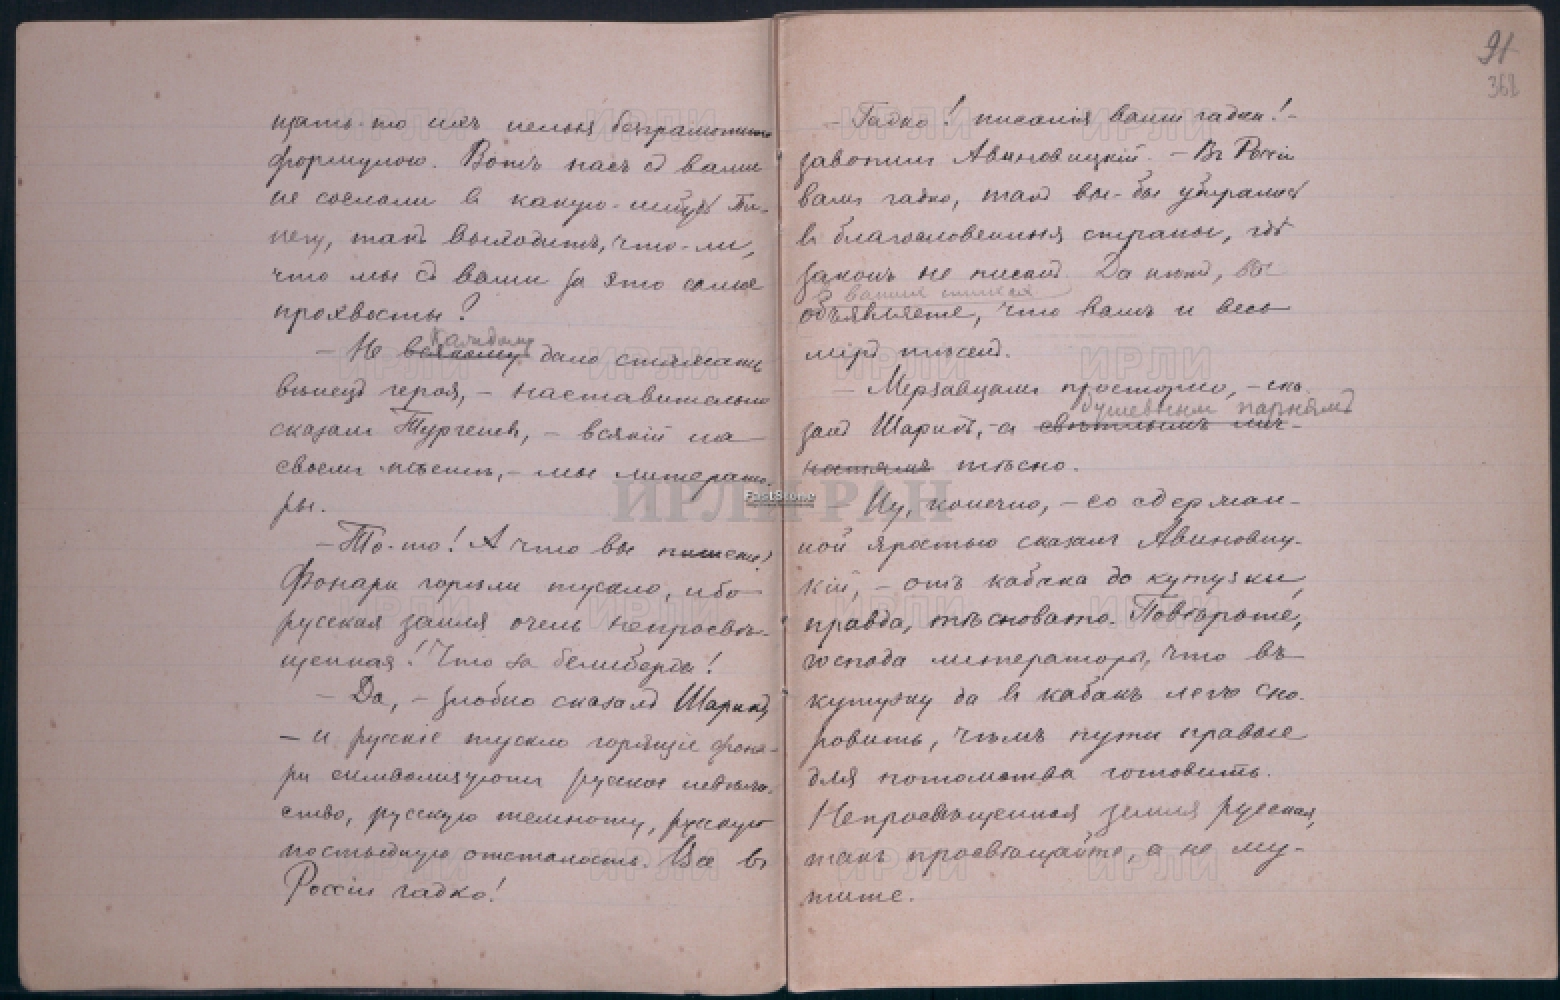 щать-то ихъ нельзя безграмотною
формулою. Вотъ насъ съ вами
не сослали въ какую-нибудь Пи-
негу, такъ выходитъ, что-ли,
что мы съ вами за это самое
прохвосты?
каждому
— Не всякому дано стяжать
вѣнецъ героя, — наставительно
сказалъ Тургеневъ, — всякій на
своемъ мѣстѣ, — мы литерато-
ры.
— То-то! А что вы пишете?
Фонари горѣли тускло, ибо
русская земля очень непросвѣ-
щенная! Что за белиберда!
— Да, — злобно сказалъ Шарикъ,
— и русскіе тускло горящіе фона-
ри символизируютъ русское невѣже-
ство, русскую темноту, русскую
постыдную отсталость. Все въ
Россіи гадко!
91
368
— Гадко! писанія ваши гадки! —
завопилъ Авиновицкій. — Въ Россіи
вамъ гадко, такъ вы-бы убирались
въ благословенныя страны, гдѣ
законъ не писанъ. Да нѣтъ, вы
въ вашихъ
объявляете, что вамъ и весь
міръ тѣсенъ.
— Мерзавцамъ просторно, — ска-
душевнымъ парнямъ
залъ Шарикъ, — а свѣтлымъ лич-
ностямъ тѣсно.
— Ну, конечно, — со сдержан-
ной яростью сказалъ Авиновиц-
кій, — отъ кабака до кутузки,
правда, тѣсновато. Повѣрьте,
господа литераторы, что въ
кутузку да въ кабакъ легче сно-
ровить, чѣмъ пути правые
для потомства готовить.
Непросвѣщенная земля русская,
такъ просвѣщайте, а не му-
тите.
ИРЛИ РАН
FastStone